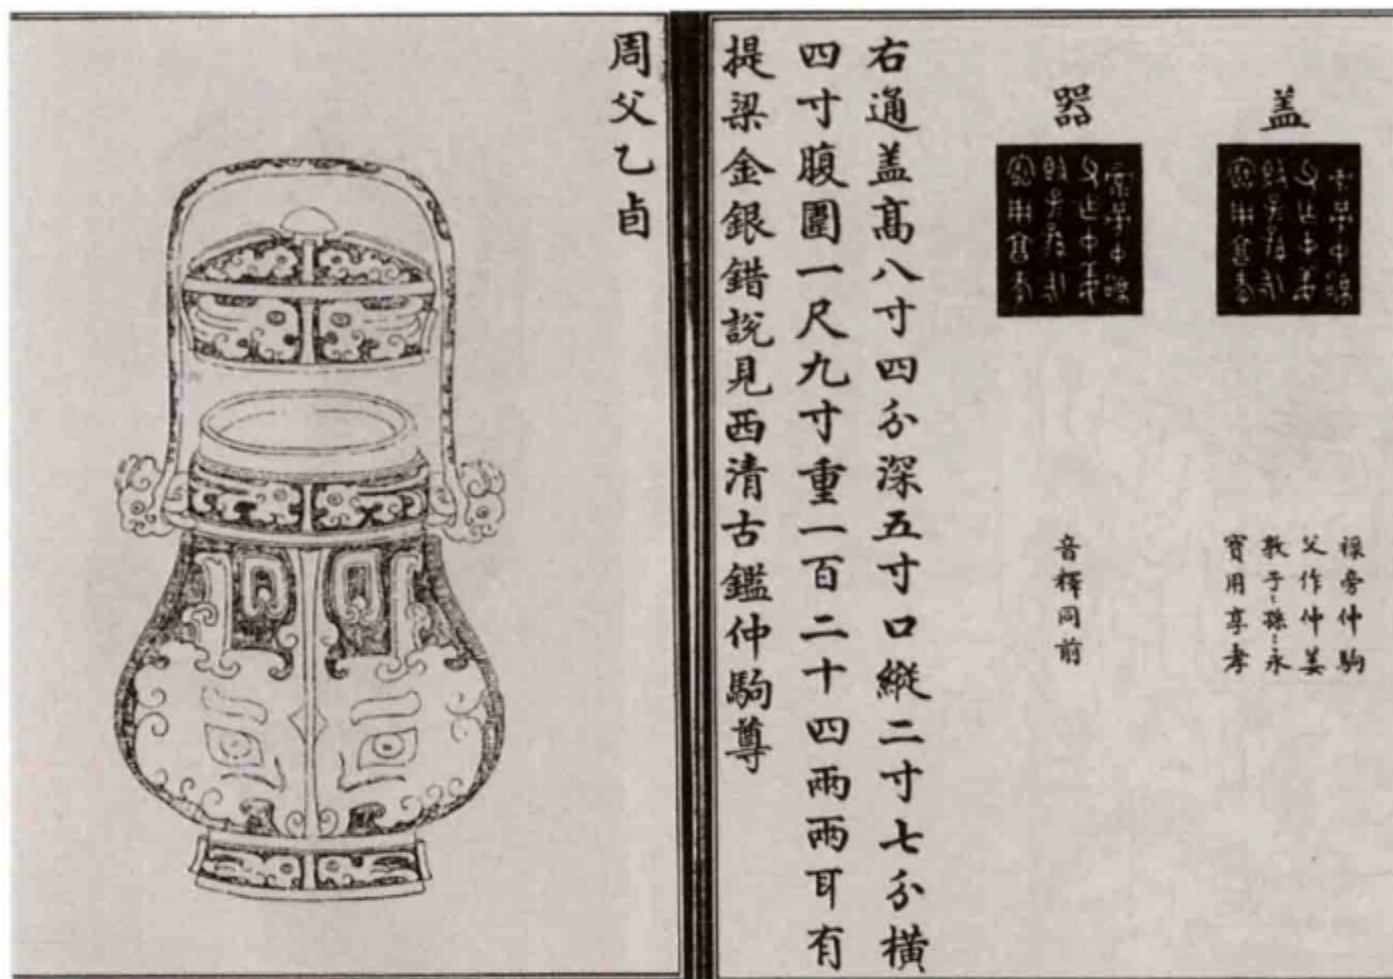 盖
祿旁仲駒
父作仲姜
敦子〻孫〻永
寶用享孝
器
音釋同前
右通盖高八寸四分深五寸口縱二寸七分橫
四寸腹圍一尺九寸重一百二十四兩兩耳有
提梁金銀錯說見西清古鑑仲駒尊
周父乙卣